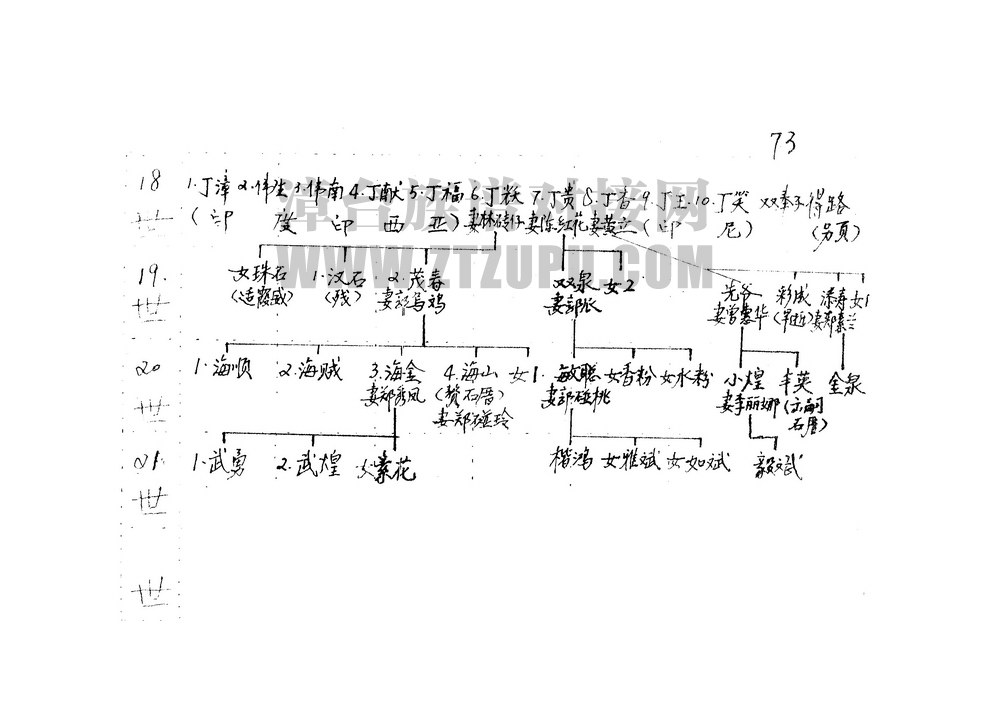 73
18 1.丁漳 2.伟生 3.伟南 4.丁献 5.丁福 6.丁 7.丁贵 8.丁香 9.丁王 10.丁笑 双奉 得路
世 (印度印西亚) 妻林 妻陈红花 妻黄立 (印尼) (另页)
漳台族谱对接网
WWW.ZTZUPU.COM
19. 女珠石 1.汉石 2.茂春 双泉 女2 先谷 彩成 添寿 女1
世 (适霞威) (残) 妻郭乌鸡 妻郭 妻曾惠华 (早逝) 妻郑素兰
20 1.海顺 2.海贼 3.海金 4.海山 女1. 敏聪 女香粉 女水粉 小煌 丰英 金泉
世 妻郑秀凤 (赘石厝) 妻郭碰桃 妻李丽娜 (嗣
妻郑碰玲 石厝)
21. 1.武勇 2.武煌 3.素花 楷鸿 女雅斌 女如斌 毅斌
世
世